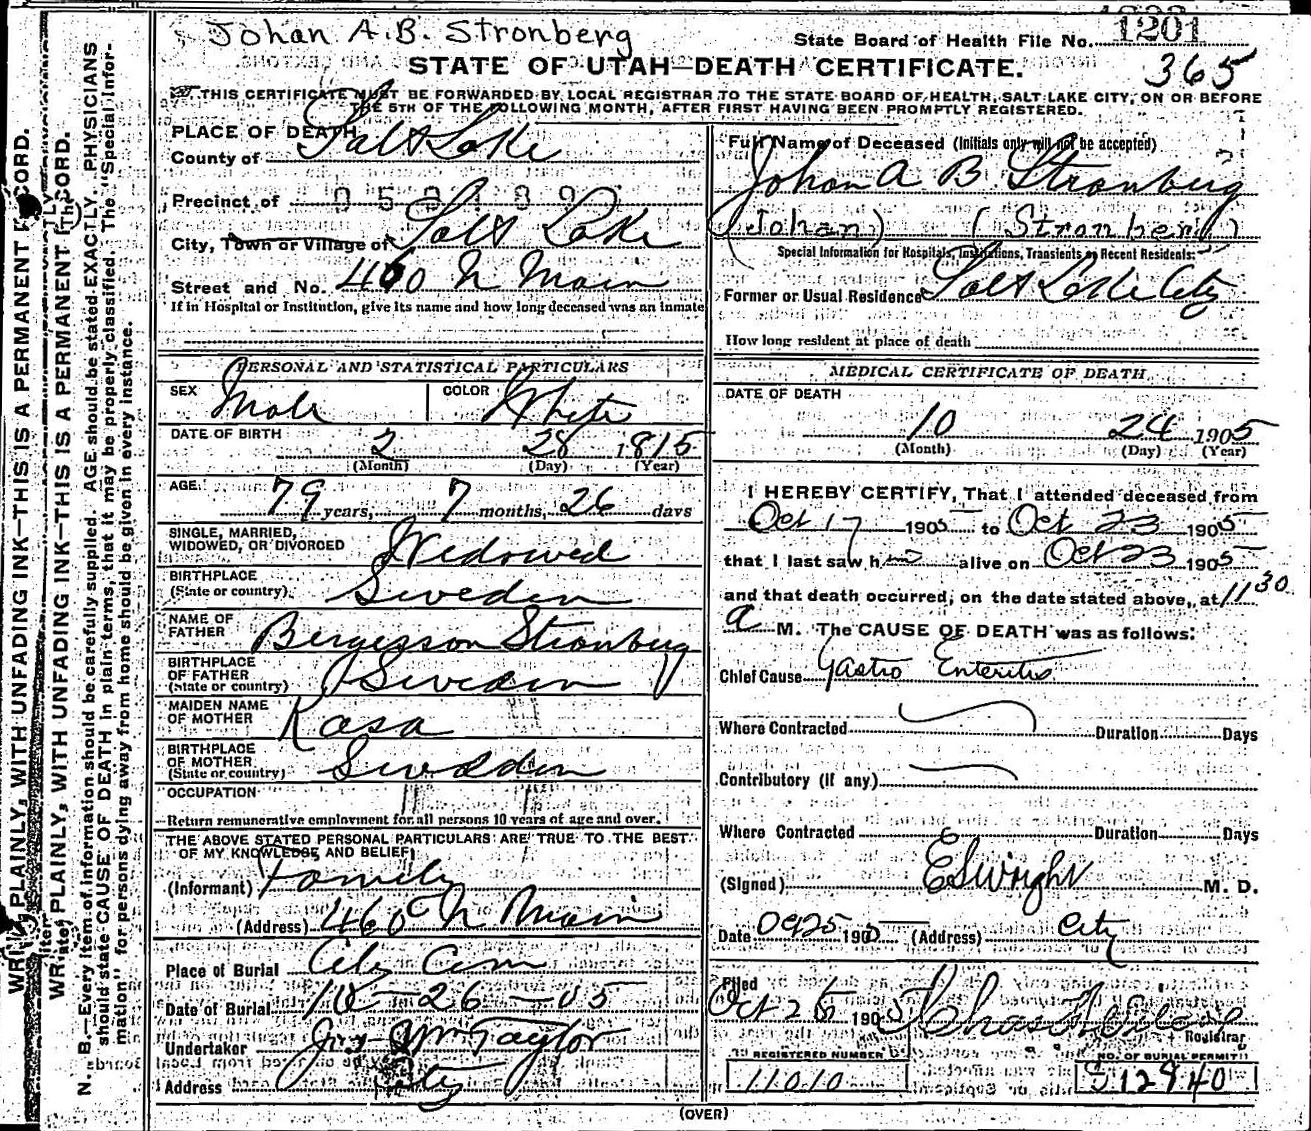 Johan A.B. Stronberg
State Board of Health File No. 1201
365
STATE OF UTAH—DEATH CERTIFICATE.
THIS CERTIFICATE MUST BE FORWARDED BY LOCAL REGISTRAR TO THE STATE BOARD OF HEALTH, SALT LAKE CITY, ON OR BEFORE
THE 5TH OF THE FOLLOWING MONTH, AFTER FIRST HAVING BEEN PROMPTLY REGISTERED.
PLACE OF DEATH
County of Salt Lake
Precinct of
City, Town or Village of Salt Lake
Street and No. 460 N Main
If in Hospital or Institution, give its name and how long deceased was an inmate
PERSONAL AND STATISTICAL PARTICULARS
SEX Male COLOR White
DATE OF BIRTH 2 28 1815
(Month) (Day) (Year)
AGE. 79 years, 7 months, 26 days
SINGLE, MARRIED,
WIDOWED, OR DIVORCED Widowed
BIRTHPLACE
(State or country) Sweden
NAME OF
FATHER Bergesson Stronberg
BIRTHPLACE
OF FATHER
(State or country) Sweden
MAIDEN NAME
OF MOTHER Kasa
BIRTHPLACE
OF MOTHER
(State or country) Sweden
OCCUPATION
Return remunerative employment for all persons 10 years of age and over.
THE ABOVE STATED PERSONAL PARTICULARS ARE TRUE TO THE BEST
OF MY KNOWLEDGE AND BELIEF
(Informant) Family
(Address) 460 N Main
Place of Burial City Cem
Date of Burial 10-26-05
Undertaker Jos Wm Taylor
Address City
Full Name of Deceased (Initials only will not be accepted)
Johan A B Stronberg
(Johan) (Stronberg)
Special Information for Hospitals, Institutions, Transients or Recent Residents:
Former or Usual Residence Salt Lake City
How long resident at place of death
MEDICAL CERTIFICATE OF DEATH
DATE OF DEATH
10 24 1905
(Month) (Day) (Year)
I HEREBY CERTIFY, That I attended deceased from
Oct 17 1905 to Oct 23 1905
that I last saw h alive on Oct 23 1905
and that death occurred, on the date stated above, at 11 30
a M. The CAUSE OF DEATH was as follows:
Chief Cause Gastro Enteritis
Where Contracted Duration Days
Contributory (if any)
Where Contracted Duration Days
(Signed) E S Wright M. D.
Date 190 (Address) City
Filed
Oct 26 1905 Registrar
REGISTERED NUMBER NO. OF BURIAL PERMIT
11010 12940
(OVER)
WRITE PLAINLY, WITH UNFADING INK—THIS IS A PERMANENT RECORD.
WRITE PLAINLY, WITH UNFADING INK—THIS IS A PERMANENT RECORD.
N. B.—Every item of information should be carefully supplied. AGE should be stated EXACTLY. PHYSICIANS
should state CAUSE OF DEATH in plain terms, that it may be properly classified. The "Special Infor-
mation" for persons dying away from home should be given in every instance.